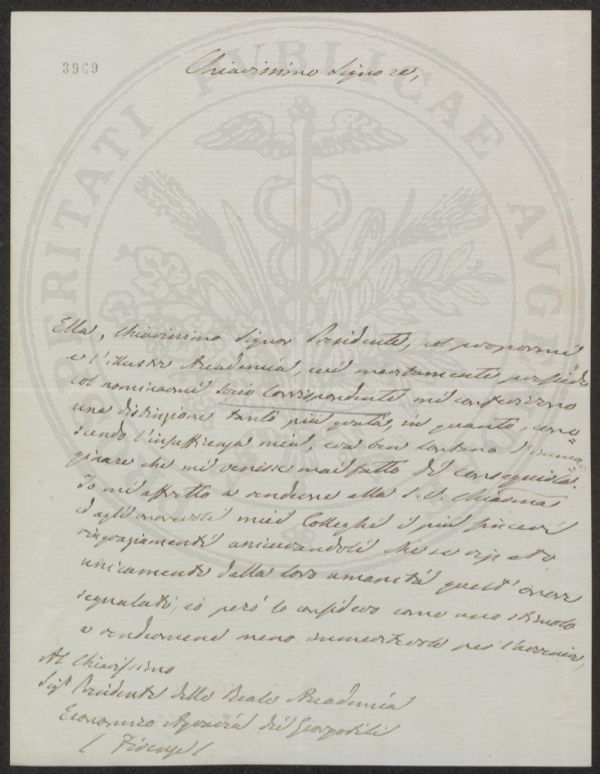 3969
Chiarissimo Signore,
PROSPERITATI PUBLICAE AUGENDAE
Ella, Chiarissimo Signor Presidente, col propormi
e l'illustre Accademia, cui meritamente presiede
col nominarmi socio Corrispondente mi conferirono
una distinzione tanto più grata, in quanto, cono=
scendo l'insufficienza mia, era ben lontano d'imma=
ginare che mi venisse mai fatto di conseguirla.
Io mi affretto a rendere alla S.V. Chiarma
e agli onorevoli miei Colleghi i più sinceri
ringraziamenti assicurandoli che se ripeto
unicamente dalla loro umanità quest'onore
segnalato, io però lo considero come uno stimolo
a rendermene meno immeritevole per l'avvenire,
Al Chiarissimo
Sigr Presidente della Reale Accademia
Economico Agraria dei Georgofili
( Firenze (